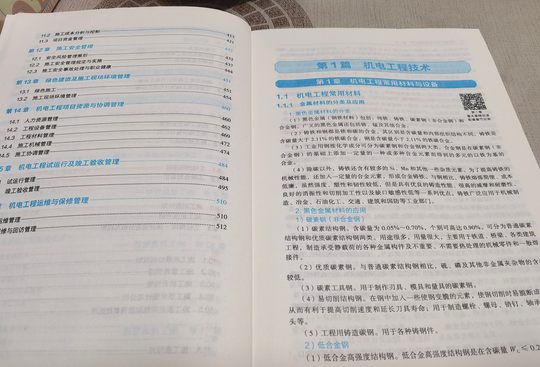 11.2 施工成本分析与控制
11.3 项目资金管理
第12章 施工安全管理
12.1 安全风险管理策划
12.2 安全施工管理规定与实施
12.3 施工安全事故处理与职业健康
第13章 绿色建造及施工现场环境管理
13.1 绿色施工
13.2 施工现场环境管理 454
第14章 机电工程项目资源与协调管理
14.1 人力资源管理 460
14.2 工程设备管理
14.3 工程材料管理
14.4 施工机械管理
14.5 施工协调管理
5章 机电工程试运行及竣工验收管理 484
试运行管理 484
竣工验收管理 495
机电工程运维与保修管理 510
运维管理 510
保修与回访管理 512
第1篇 机电工程技术
第1章 机电工程常用材料与设备
1.1 机电工程常用材料
1.1.1 金属材料的分类及应用
1. 黑色金属材料的分类
(1)黑色金属(钢铁材料)包括:纯铁、铸铁、碳素钢(非合金钢)和
合金钢,广义的黑色金属还包括铬、锰及其他合金。
(2)铸铁和钢都是铁和碳的合金,其区别是含碳量和内部组织结构不同,铸铁是
含碳量大于2.11%的铁碳合金,钢是含碳量小于2.11%的铁碳合金。
(3)工业用钢按化学成分可分为碳素钢和合金钢两大类,合金钢是在碳素钢(非
合金钢)的基础上添加一定量的一种或多种合金元素后得到的多元的以铁为基的
合金。
(4)除碳以外,铸铁还含有较多的Si、Mn和其他一些杂质元素,为了提高铸铁的
机械性能,还加入一定量的合金元素,形成合金铸铁。与钢相比,铸铁熔炼简便、成本
低廉,虽然强度、塑性和韧性较低,但是具有优良的铸造性能、很高的减摩和耐磨性、
良好的消振性和切削加工性以及缺口敏感性低等一系列优点。铸铁广泛应用于机械制
造、冶金、石油化工、交通、建筑和国防等工业部门。
2. 黑色金属材料的应用
1)碳素钢(非合金钢)
(1)碳素结构钢,含碳量为0.05%~0.70%,个别可高达0.90%,可分为普通碳素
结构钢和优质碳素结构钢两类。用途很多,用量很大,主要用于铁道、桥梁、各类建筑
工程,制造承受静载荷的各种金属构件及不重要、不需要热处理的机械零件和一般焊
接件。
(2)优质碳素钢。与普通碳素结构钢相比,硫、磷及其他非金属夹杂物的含
较低。
(3)碳素工具钢。用于制作刃具、模具和量具的碳素钢。
(4)易切削结构钢。在钢中加入一些使钢变脆的元素,使钢切削时易脆断成
从而有利于提高切削速度和延长刀具寿命;用于制造螺栓、螺母、销钉、轴承
头等。
(5)工程用铸造碳钢。用于各种铸钢件。
2)低合金钢
(1)低合金高强度结构钢。低合金高强度结构钢是在含碳量 ≤0.2